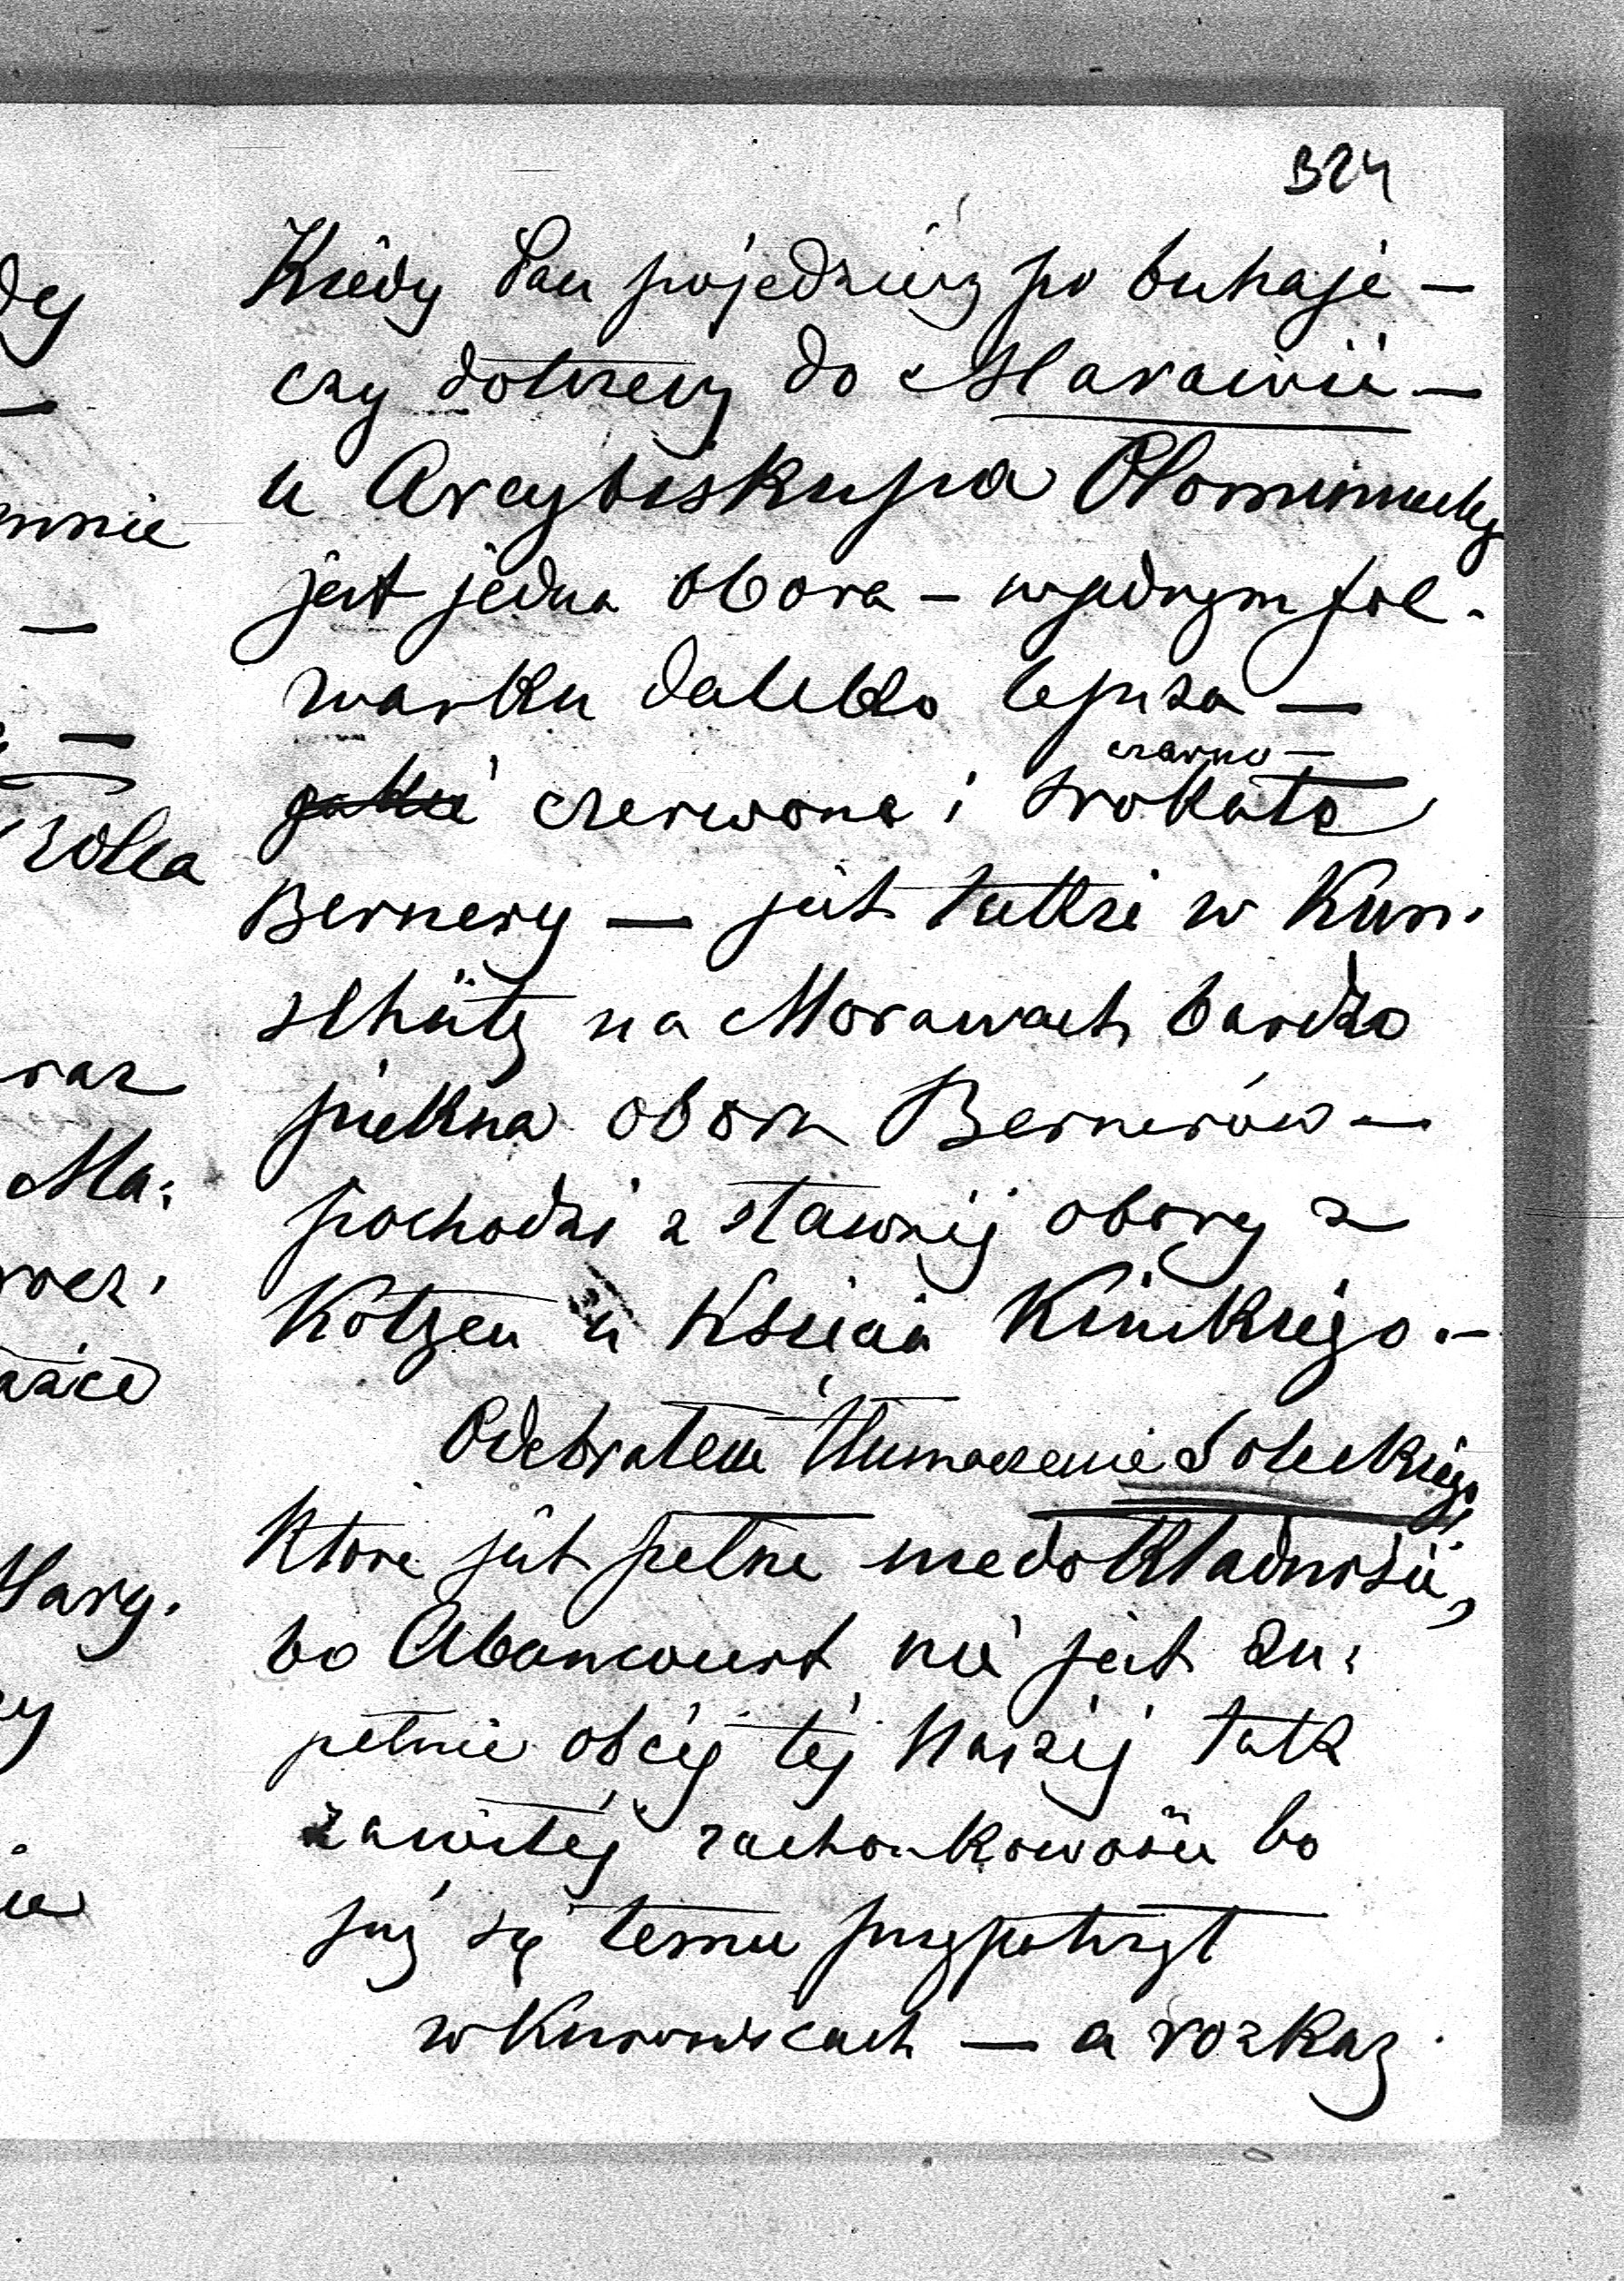 324
Kiedy Pan pojedziesz po buhaje —
czy dotrzesz do Morawii —
u Arcybiskupa Ołomuniecky
jest jedna obora — w jednym fol-
warku daleko lepsza —
czarno —
czerwone i srokate
Bernery — jest także w Kun-
schütz na Morawach bardzo
piękna obora Bernerów —
pochodzi z sławnéj obory z
Kotzen u Księcia Kińskiego. —
Odebrałem tłumaczenie Soleckiego
które jest pełne niedokładności,
bo Abancourt nie jest zu-
pełnie obcy téj naszéj tak
zawiłéj rachonkowości bo
już się temu przypatrzył
w Kurowicach — a rozkaz
dy
mnie
raz
Ma-